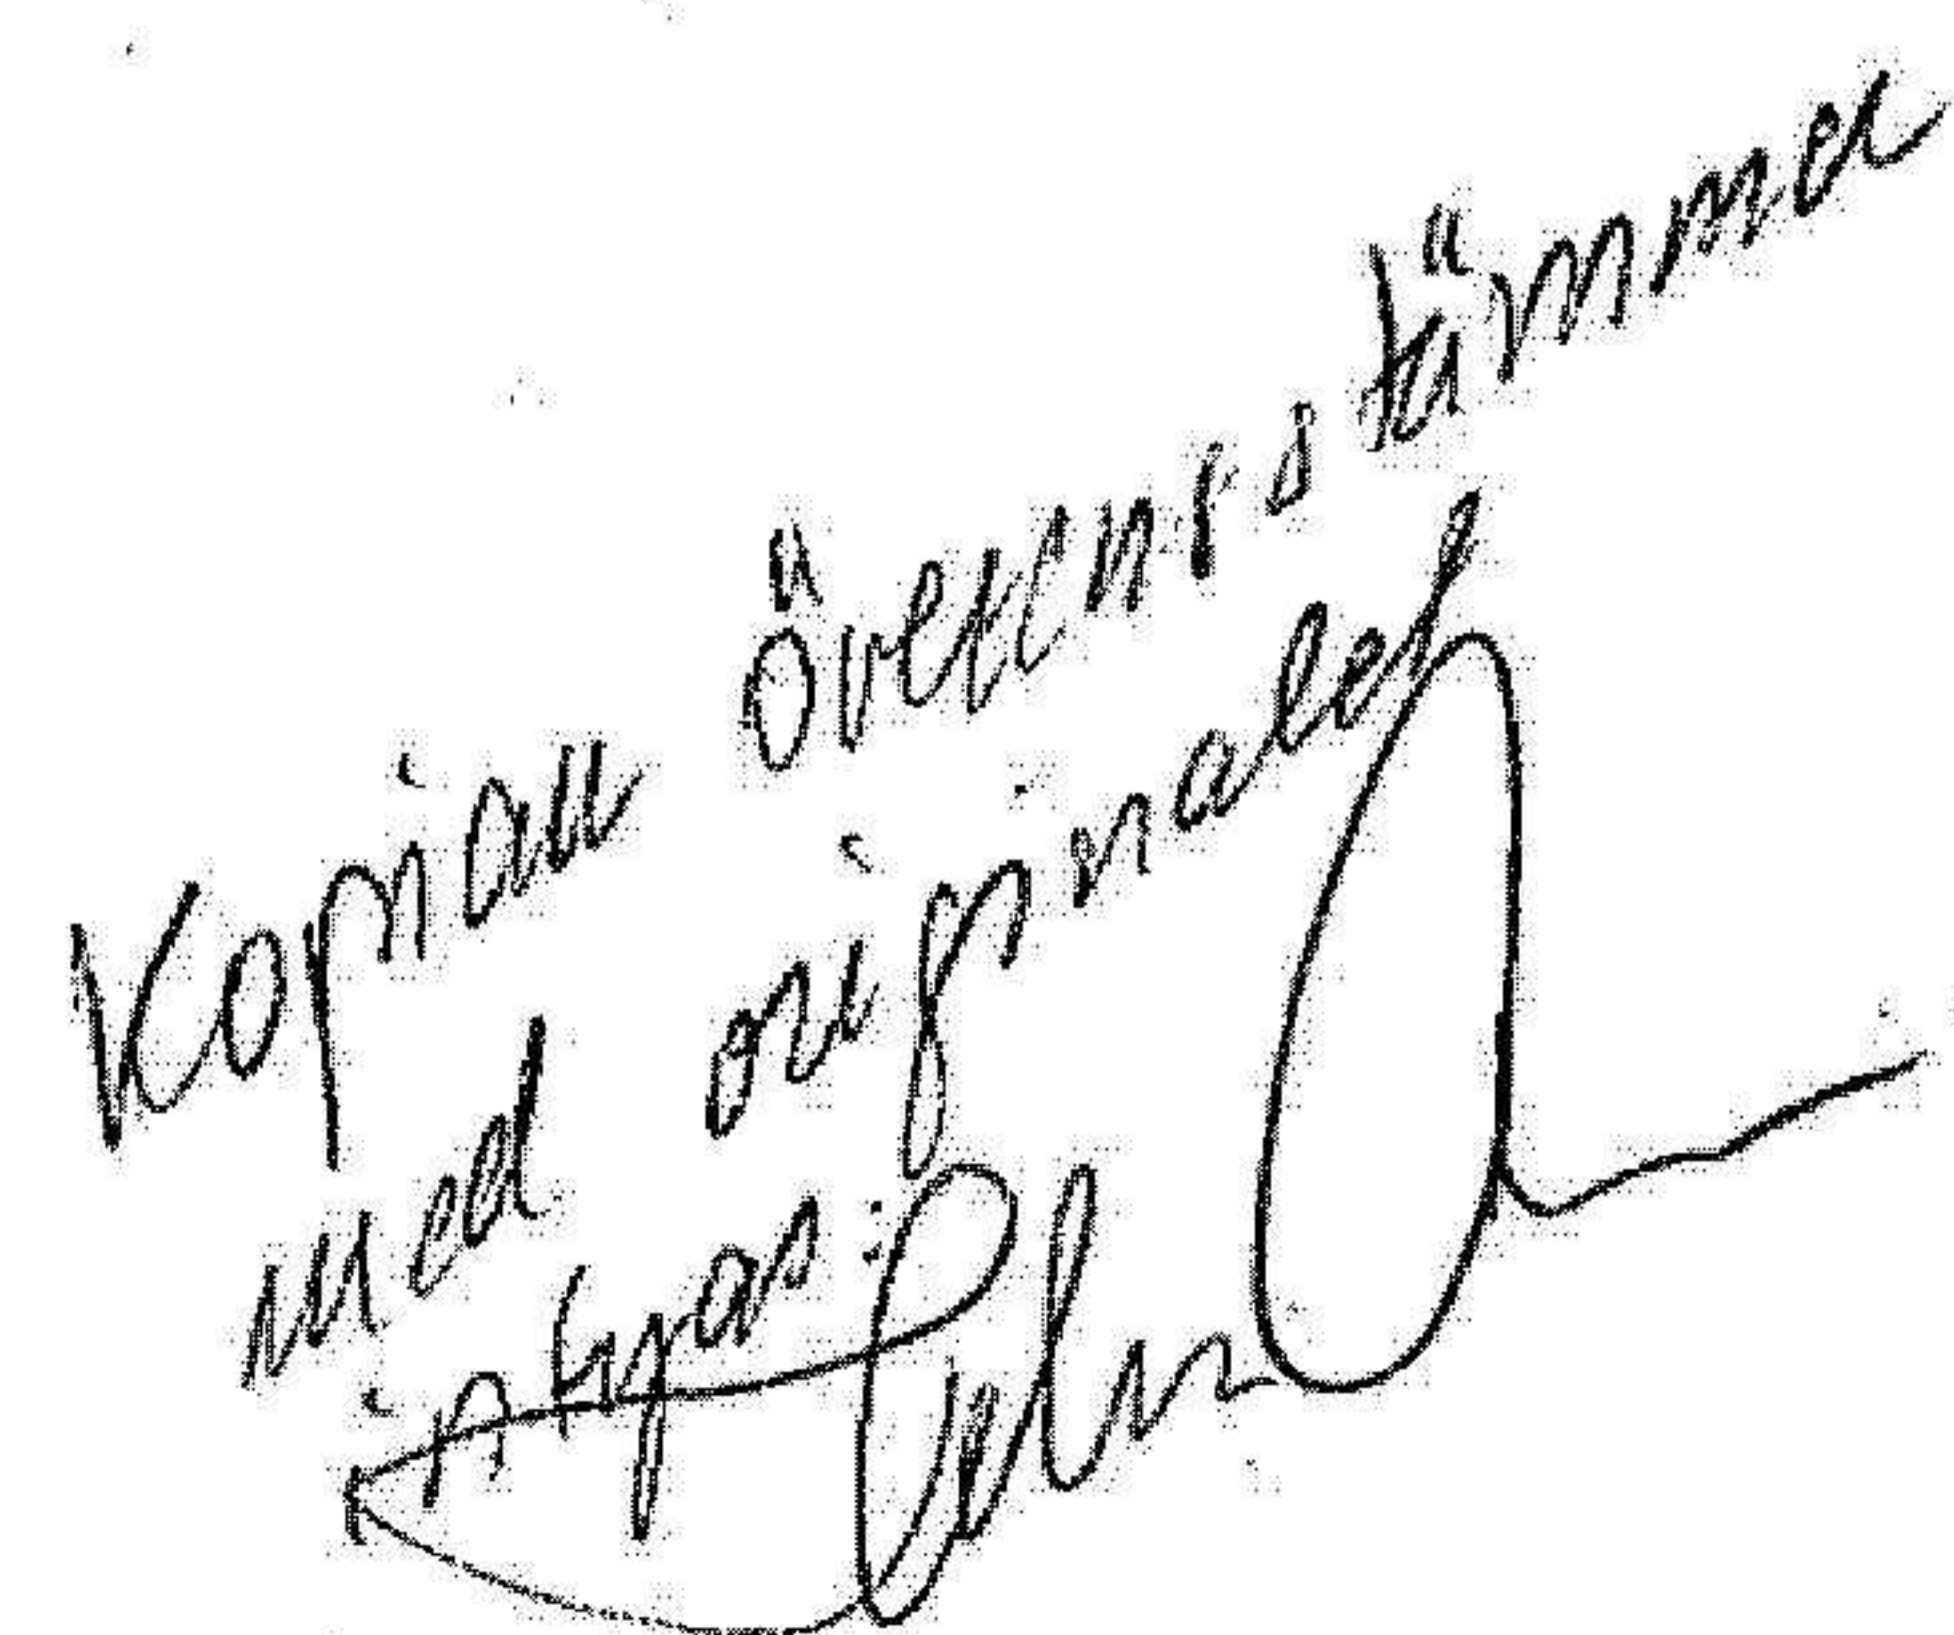 Kopian överensstämmer
med originalet
intygas: